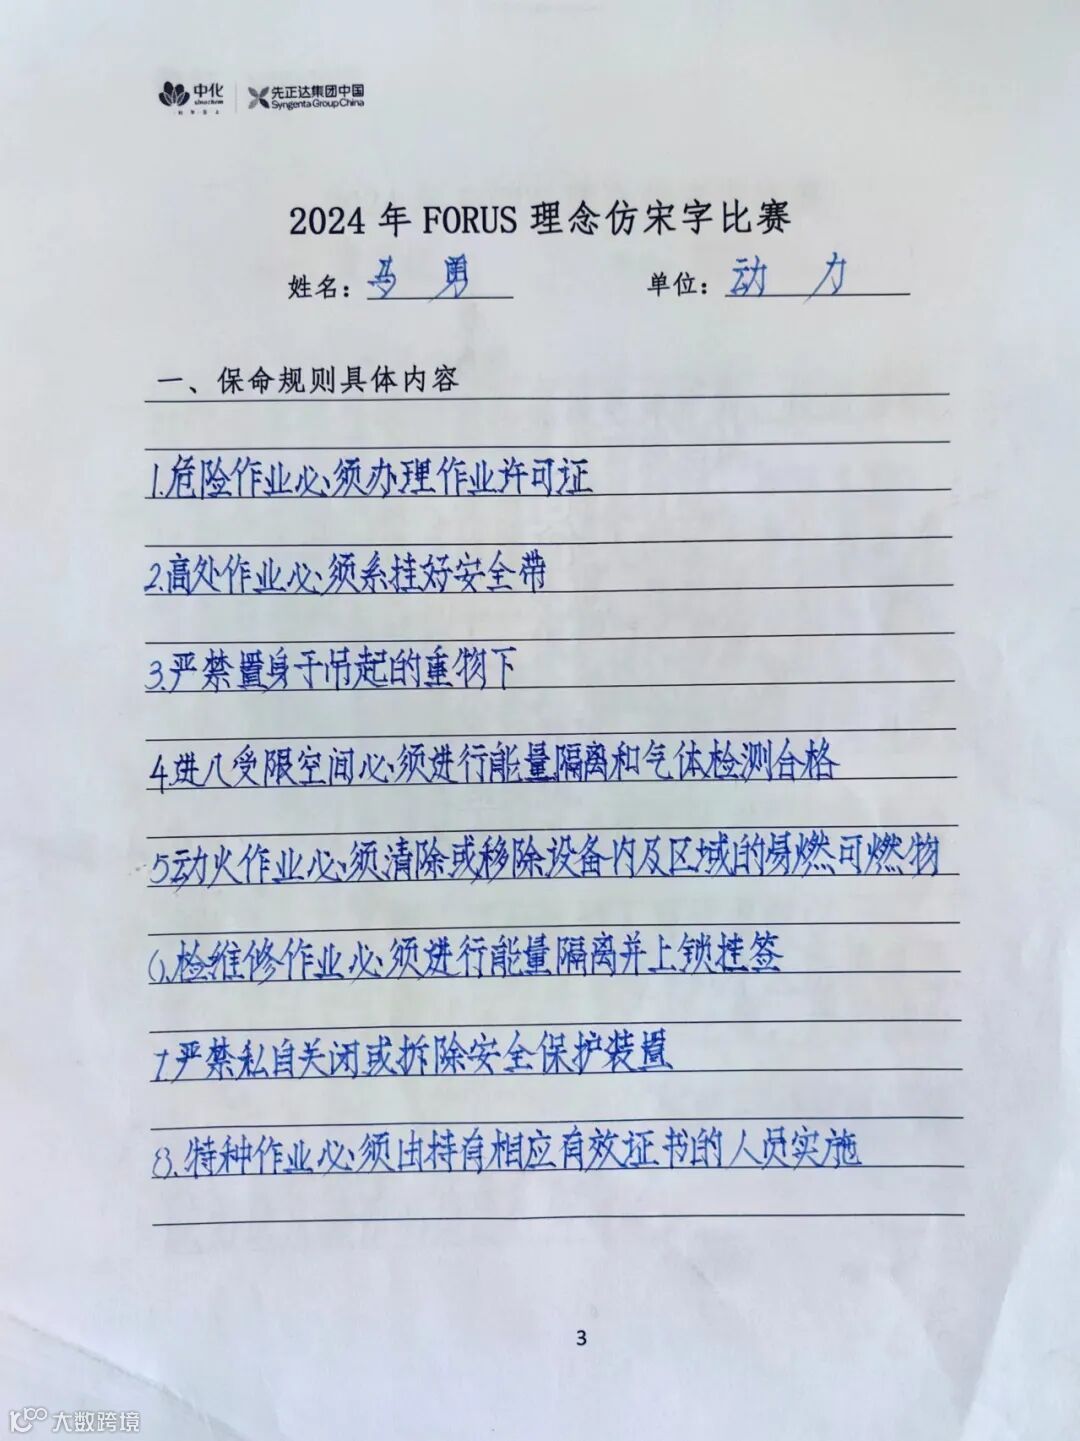 中化 先正达集团中国
sinochem Syngenta Group China
2024 年 FORUS 理念仿宋字比赛
姓名：马 勇 单位：动 力
一、保命规则具体内容
1.危险作业必须办理作业许可证
2.高处作业必须系挂好安全带
3.严禁置身于吊起的重物下
4.进入受限空间必须进行能量隔离和气体检测合格
5.动火作业必须清除或移除设备内及区域的易燃可燃物
6.检维修作业必须进行能量隔离并上锁挂签
7.严禁私自关闭或拆除安全保护装置
8.特种作业必须由持有相应有效证书的人员实施
3
大数跨境